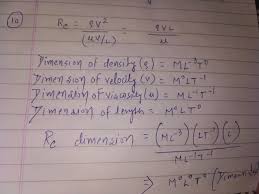 10 Re = ρV² / (μV/L) = ρVL / μ
Dimension of density (ρ) = ML⁻³T⁰
Dimension of velocity (v) = M⁰LT⁻¹
Dimension of viscosity (μ) = ML⁻¹T⁻¹
Dimension of length = M⁰LT⁰
Re dimension = (ML⁻³) (LT⁻¹) (L) / ML⁻¹T⁻¹
⇒ M⁰L⁰T⁰